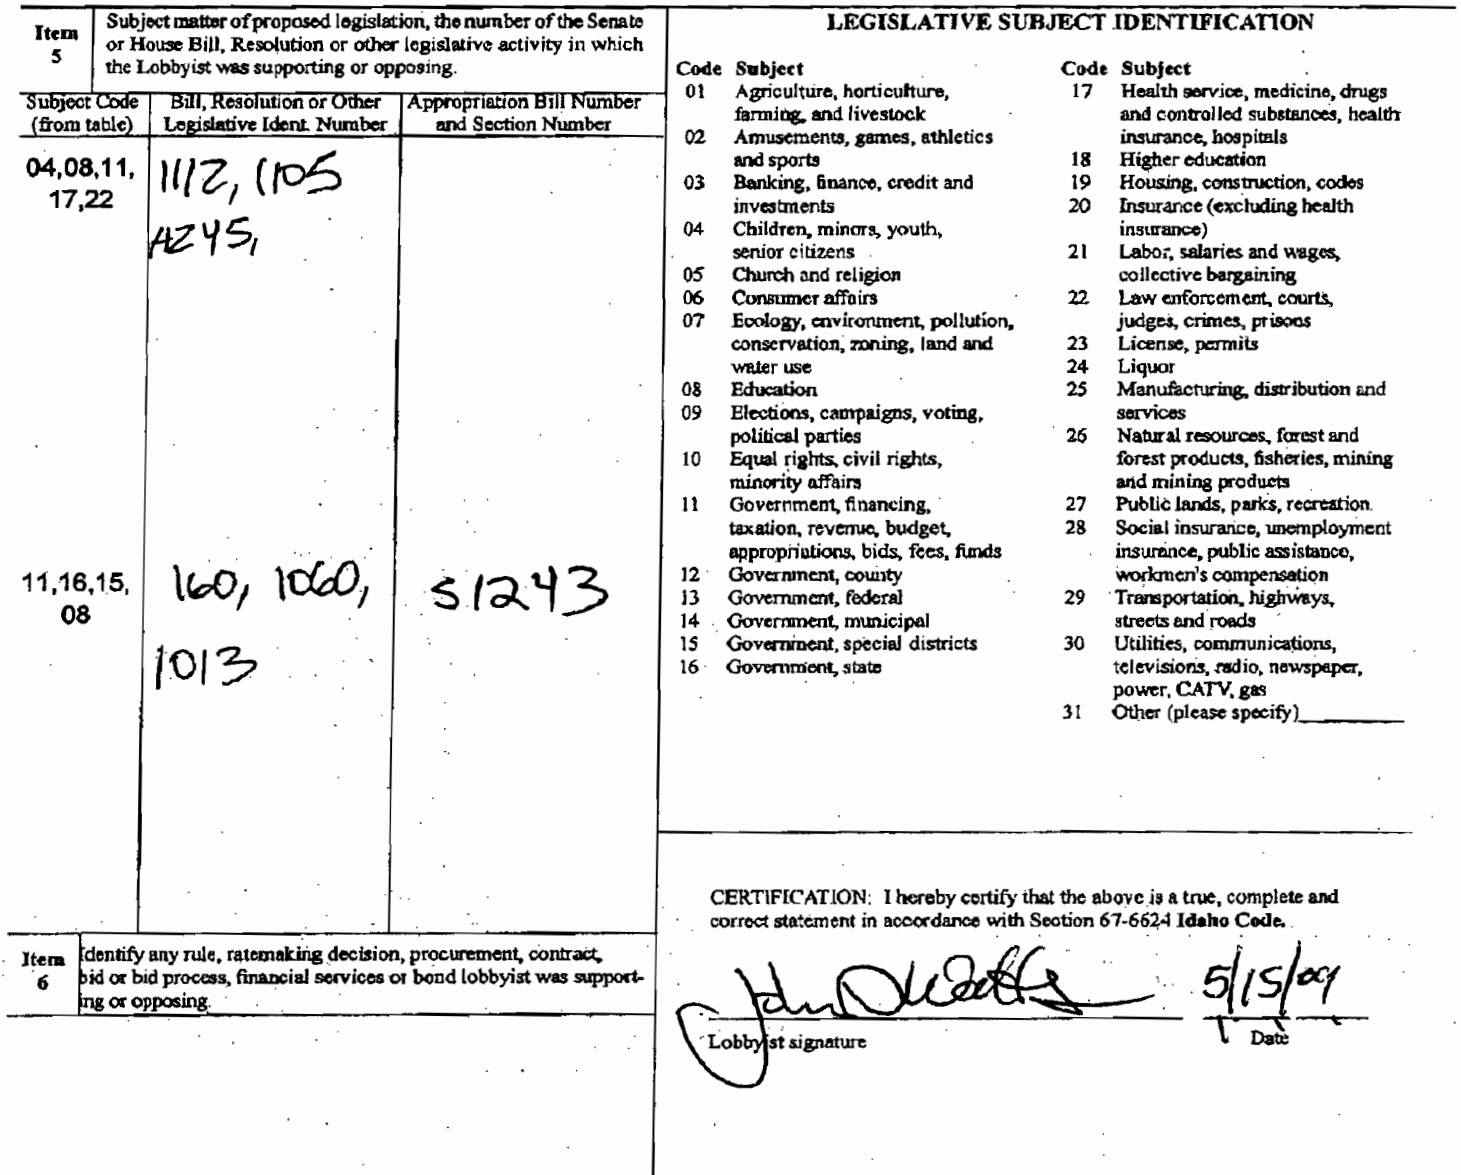 Item
5
Subject matter of proposed legislation, the number of the Senate
or House Bill, Resolution or other legislative activity in which
the Lobbyist was supporting or opposing.
Subject Code
(from table)
Bill, Resolution or Other
Legislative Ident. Number
Appropriation Bill Number
and Section Number
04,08,11,
17,22
1112, 1105
HZ45,
11,16,15,
08
160, 1060,
1013
S1243
Item
6
Identify any rule, ratemaking decision, procurement, contract,
bid or bid process, financial services or bond lobbyist was support-
ing or opposing.
LEGISLATIVE SUBJECT IDENTIFICATION
Code Subject
01 Agriculture, horticulture,
farming, and livestock
02 Amusements, games, athletics
and sports
03 Banking, finance, credit and
investments
04 Children, minors, youth,
senior citizens
05 Church and religion
06 Consumer affairs
07 Ecology, environment, pollution,
conservation, zoning, land and
water use
08 Education
09 Elections, campaigns, voting,
political parties
10 Equal rights, civil rights,
minority affairs
11 Government, financing,
taxation, revenue, budget,
appropriations, bids, fees, funds
12 Government, county
13 Government, federal
14 Government, municipal
15 Government, special districts
16 Government, state
Code Subject
17 Health service, medicine, drugs
and controlled substances, health
insurance, hospitals
18 Higher education
19 Housing, construction, codes
20 Insurance (excluding health
insurance)
21 Labor, salaries and wages,
collective bargaining
22 Law enforcement, courts,
judges, crimes, prisons
23 License, permits
24 Liquor
25 Manufacturing, distribution and
services
26 Natural resources, forest and
forest products, fisheries, mining
and mining products
27 Public lands, parks, recreation.
28 Social insurance, unemployment
insurance, public assistance,
workmen's compensation
29 Transportation, highways,
streets and roads
30 Utilities, communications,
televisions, radio, newspaper,
power, CATV, gas
31 Other (please specify)
CERTIFICATION: I hereby certify that the above is a true, complete and
correct statement in accordance with Section 67-6624 Idaho Code.
John D Watts
5/15/09
Lobbyist signature
Date